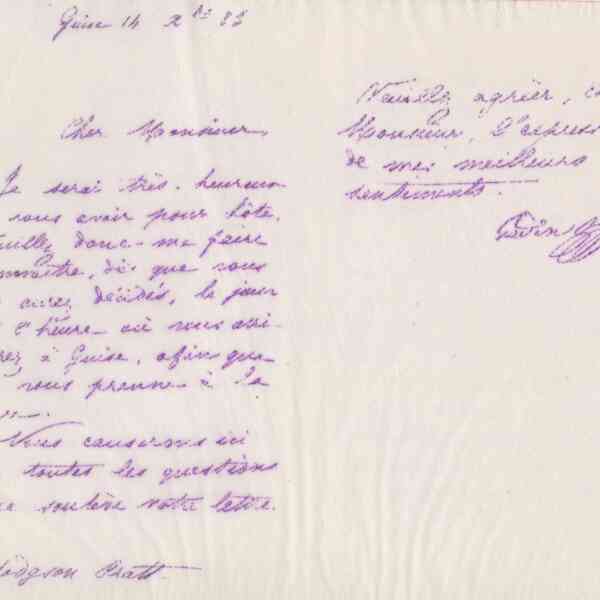 Guise 14 Xbre 85
Cher Monsieur,
Je serai très heureux
vous avoir pour hôte.
euillez donc me faire
onnaître, dès que vous
aurez décidés, le jour
l'heure où vous arri-
rez à Guise, afin que
vous prenne à la
Nous causerons ici
toutes les questions
soulève votre lettre.
Hodgson Pratt
Veuillez agréer, C
Monsieur, l'express
de mes meilleurs
sentiments.
Godin